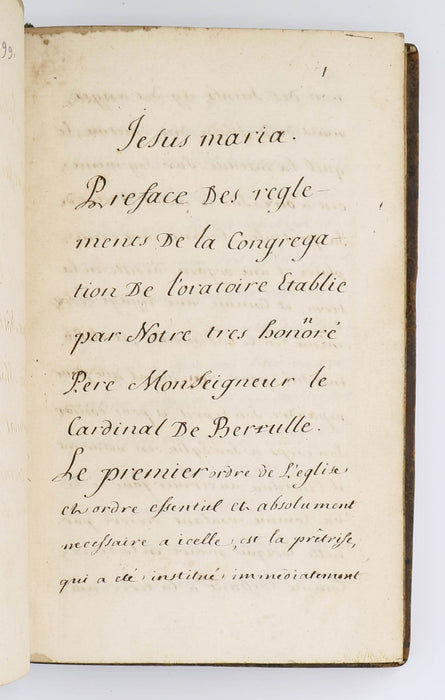 99.
1
Jesus maria.
Preface Des regle-
ments De la Congrega-
tion De l'oratoire Etablie
par Notre tres honnré
Pere Monseigneur le
Cardinal De Berrulle.
Le premier ordre de L'eglise
et ordre essentiel et absolument
necessaire a icelle, est la prêtrise,
qui a été institué immediatement